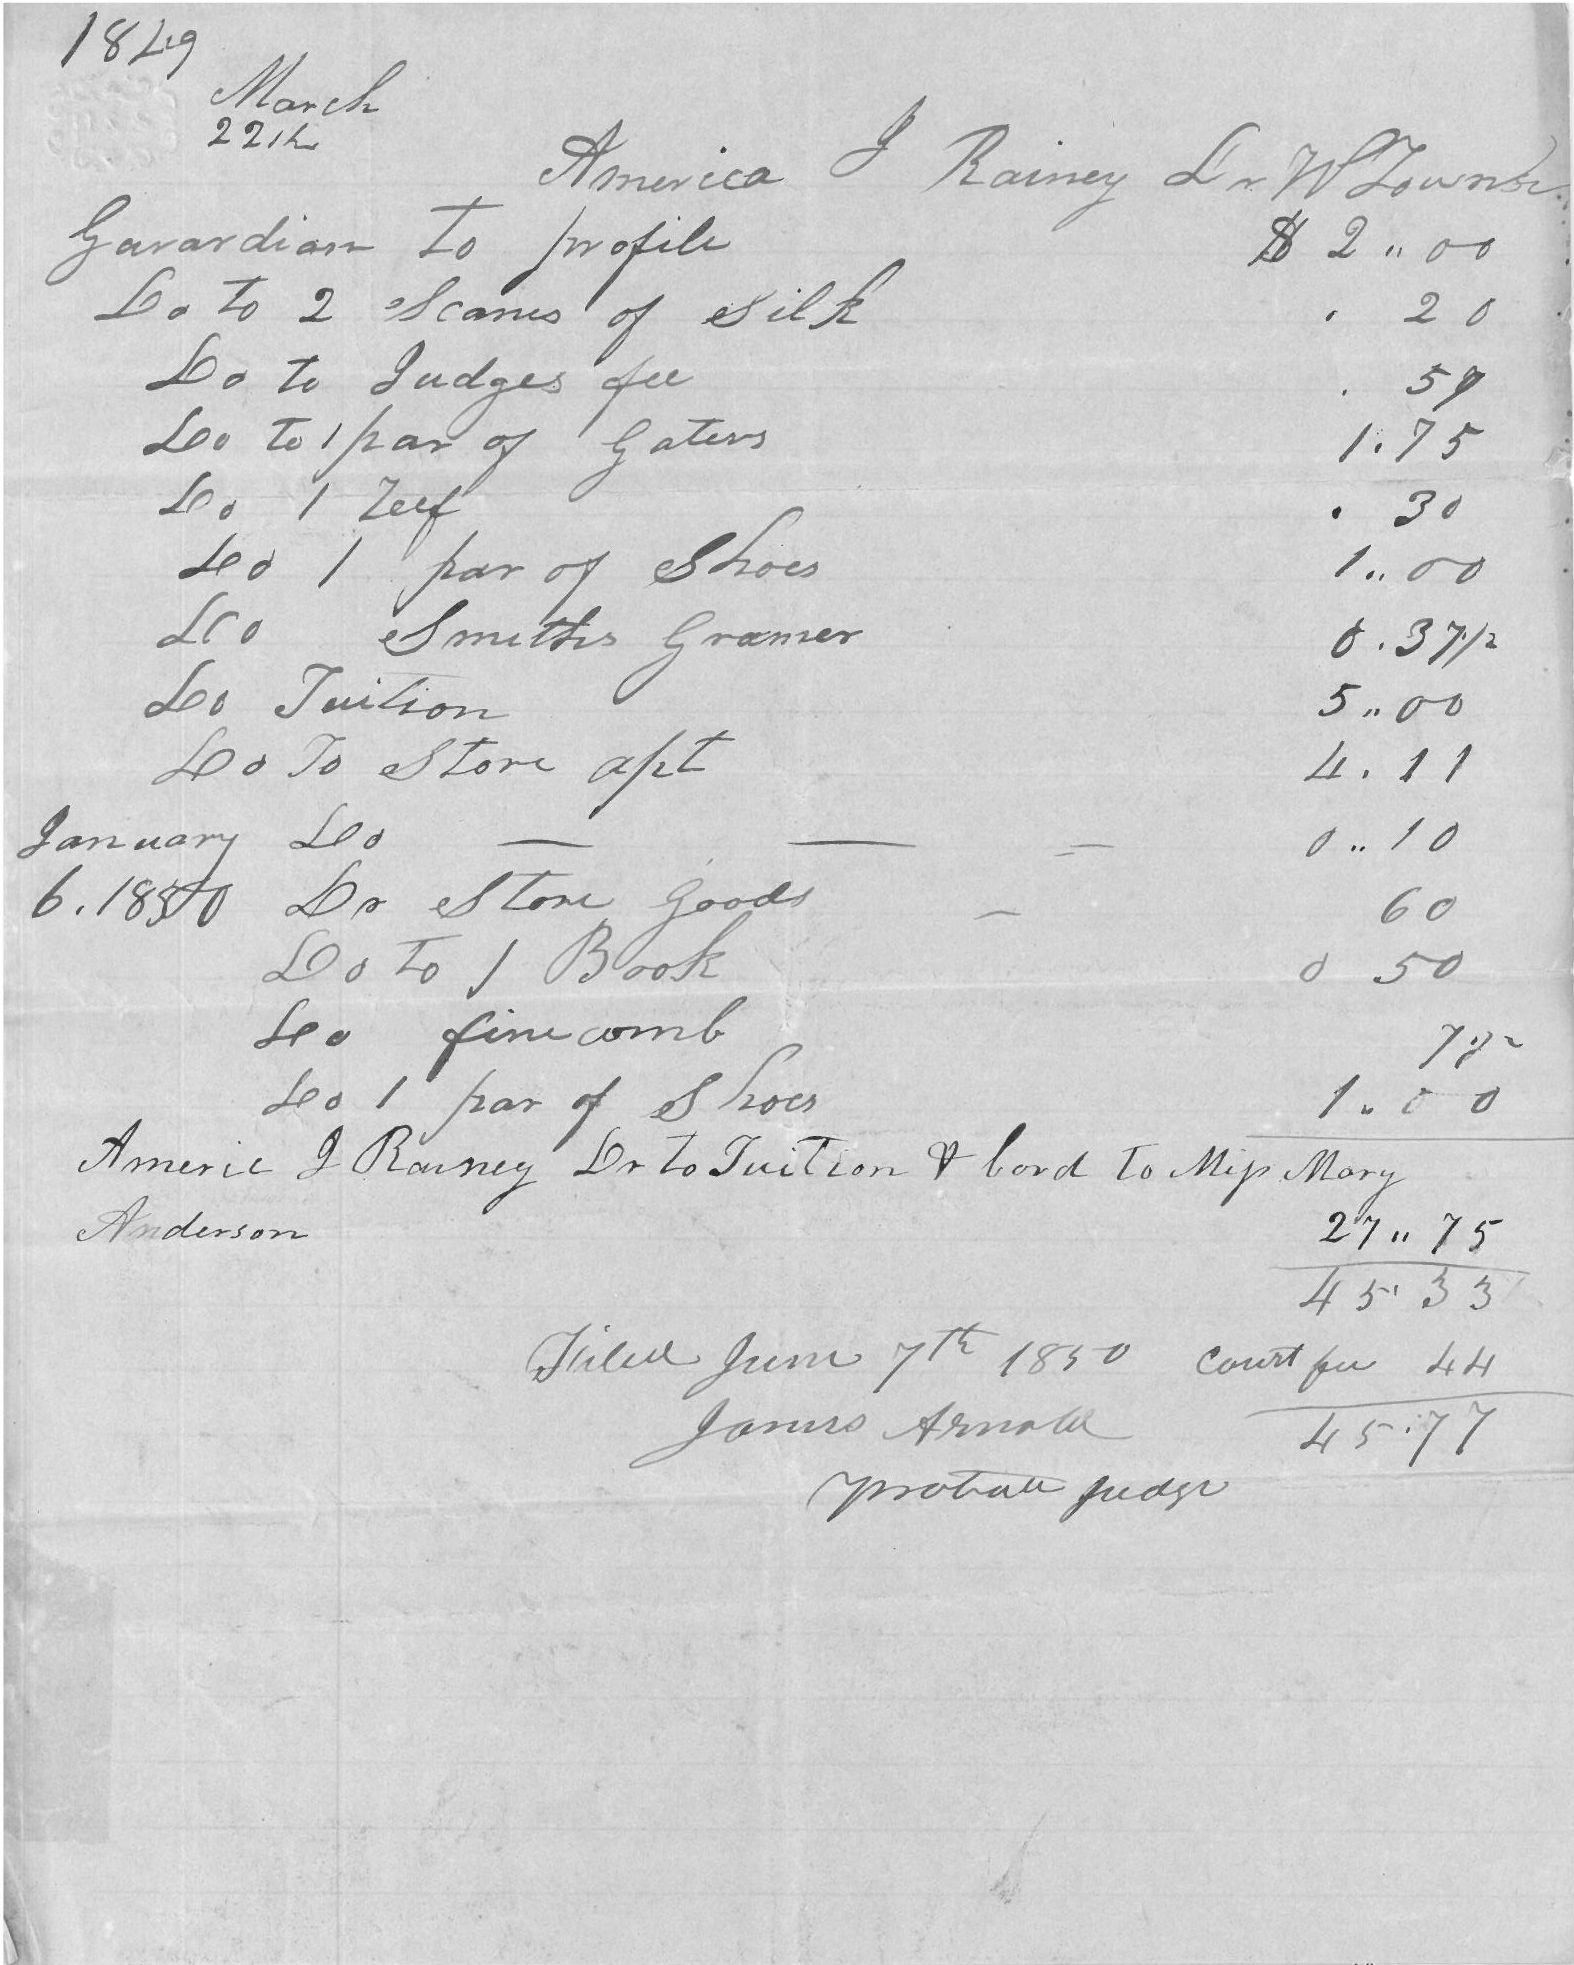 1849
March
22th
America J Rainey Dr W Towns
Gavardian to profile $ 2 " 00
Do to 2 Scanes of Silk . 20
Do to Judges fee . 50
Do to 1 par of Gaters 1.75
Do 1 . 30
Do 1 par of Shoes 1 .. 00
Do Smiths Gramer 0 . 37 1/2
Do Tuition 5 .. 00
Do To Store apt 4 . 11
January Do — — = 0 .. 10
6 . 1850 Dr Store Goods – 60
Do to 1 Book 0 50
Do fine comb
Do 1 par of Shoes 1 .. 00
Americ J Rainey Dr to Tuition & bord to Miss Mary
Anderson 27 .. 75
45.33
Filed June 7th 1850 court fee 44
James Arnold 45.77
probate Judge